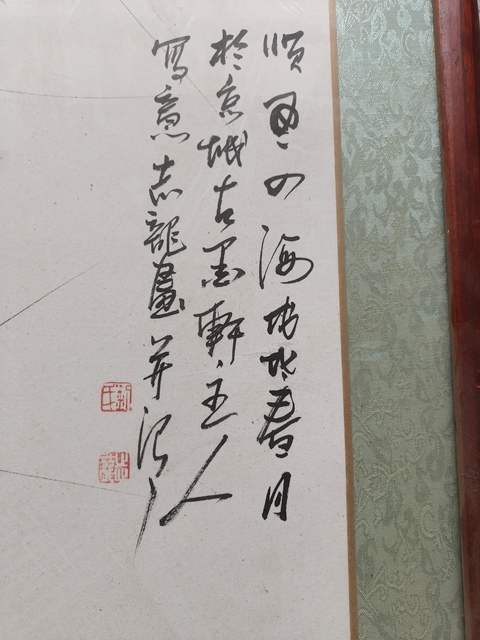 順四海春月
於京城古墨軒主人
寫意志龍畫并記
志龍